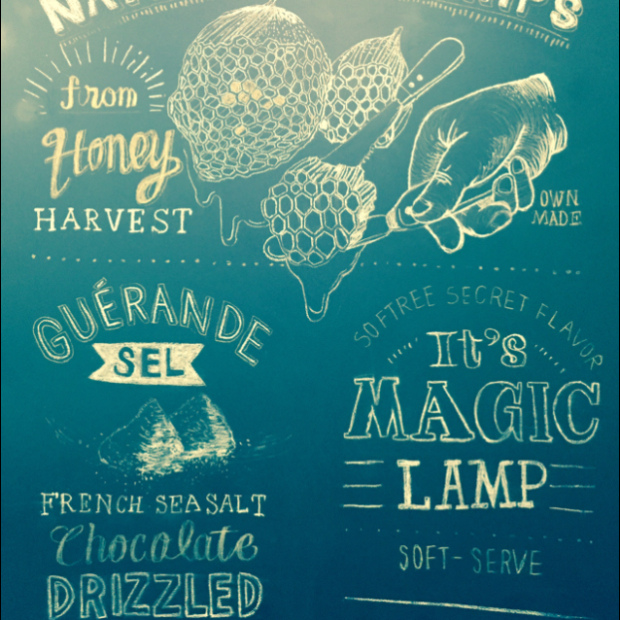 from
Honey
HARVEST
OWN
MADE
GUÉRANDE
SEL
FRENCH SEASALT
Chocolate
DRIZZLED
SOFTREE SECRET FLAVOR
It's
MAGIC
LAMP
SOFT-SERVE